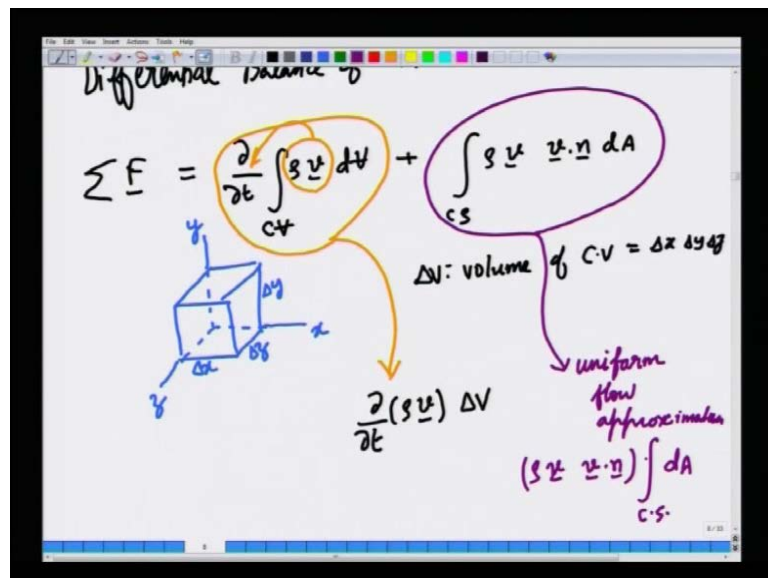 File Edit View Insert Actions Tools Help
Differential Balance of
∑ F = ∂/∂t ∫ ρ v dV + ∫ ρ v v·n dA
C.V C.S
ΔV: volume of C.V = Δx Δy Δz
y
Δy
x
Δz
Δx
z
∂/∂t (ρ v) ΔV
uniform
flow
approximation
(ρ v v·n) ∫ dA
C.S.